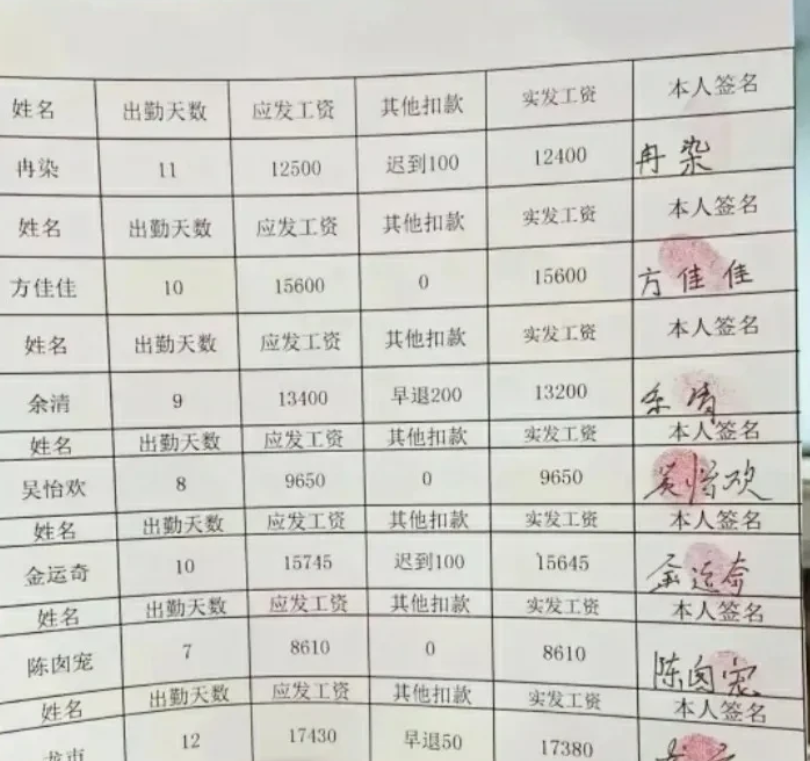 姓名 出勤天数 应发工资 其他扣款 实发工资 本人签名
冉染 11 12500 迟到100 12400 冉染
姓名 出勤天数 应发工资 其他扣款 实发工资 本人签名
方佳佳 10 15600 0 15600 方佳佳
姓名 出勤天数 应发工资 其他扣款 实发工资 本人签名
余清 9 13400 早退200 13200 余清
姓名 出勤天数 应发工资 其他扣款 实发工资 本人签名
吴怡欢 8 9650 0 9650 吴怡欢
姓名 出勤天数 应发工资 其他扣款 实发工资 本人签名
金运奇 10 15745 迟到100 15645 金运奇
姓名 出勤天数 应发工资 其他扣款 实发工资 本人签名
陈囱宠 7 8610 0 8610 陈囱宠
姓名 出勤天数 应发工资 其他扣款 实发工资 本人签名
12 17430 早退50 17380